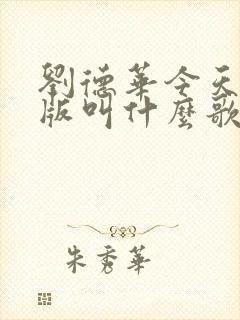 劉德華今天
版叫什麼歌
朱秀華